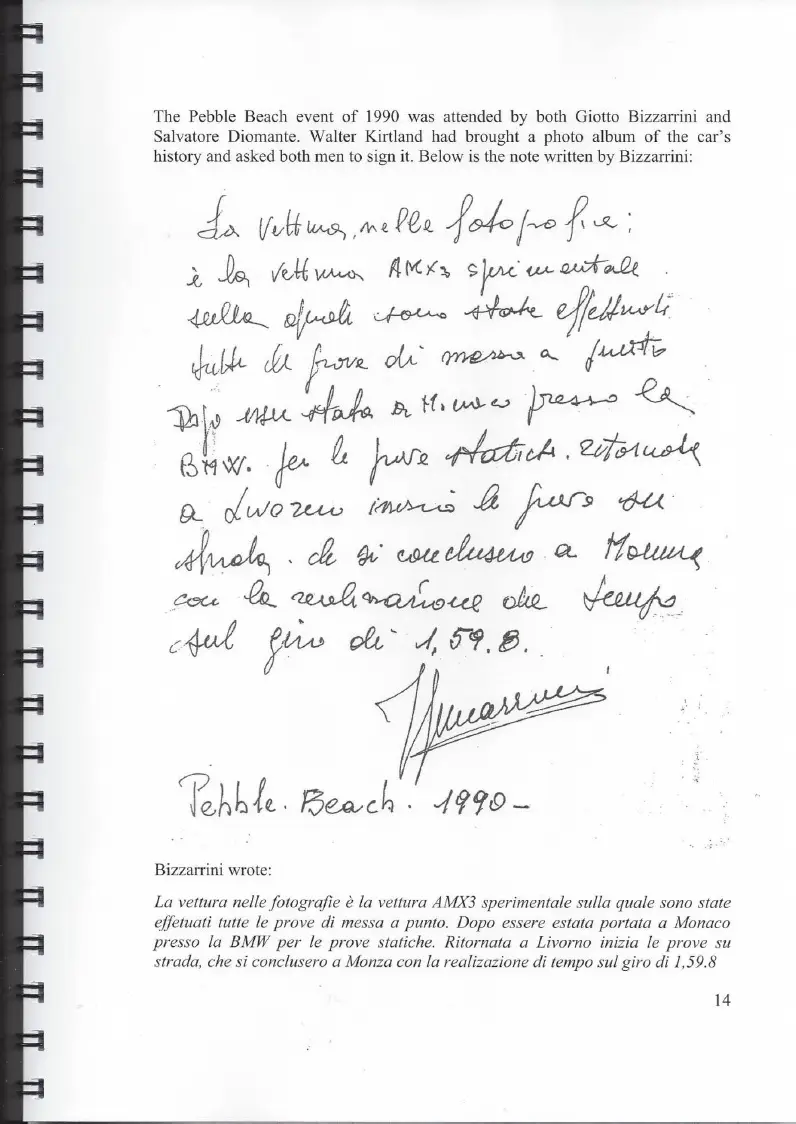 The Pebble Beach event of 1990 was attended by both Giotto Bizzarrini and
Salvatore Diomante. Walter Kirtland had brought a photo album of the car's
history and asked both men to sign it. Below is the note written by Bizzarrini:
La Vettura, nelle fotografie;
è la vettura AMX3 sperimentale
sulla quali sono state effettuati
tutte le prove di messa a punto
Dopo stata a Monaco presso la
BMW. per le prove statiche. Ritornata
a Livorno iniziò le prove su
strada. che si conclusero a Monza
con la realizzazione del tempo
sul giro di 1,59.8.
Pebble. Beach. 1990-
Bizzarrini wrote:
La vettura nelle fotografie è la vettura AMX3 sperimentale sulla quale sono state
effetuati tutte le prove di messa a punto. Dopo essere estata portata a Monaco
presso la BMW per le prove statiche. Ritornata a Livorno inizia le prove su
strada, che si conclusero a Monza con la realizazione di tempo sul giro di 1,59.8
14